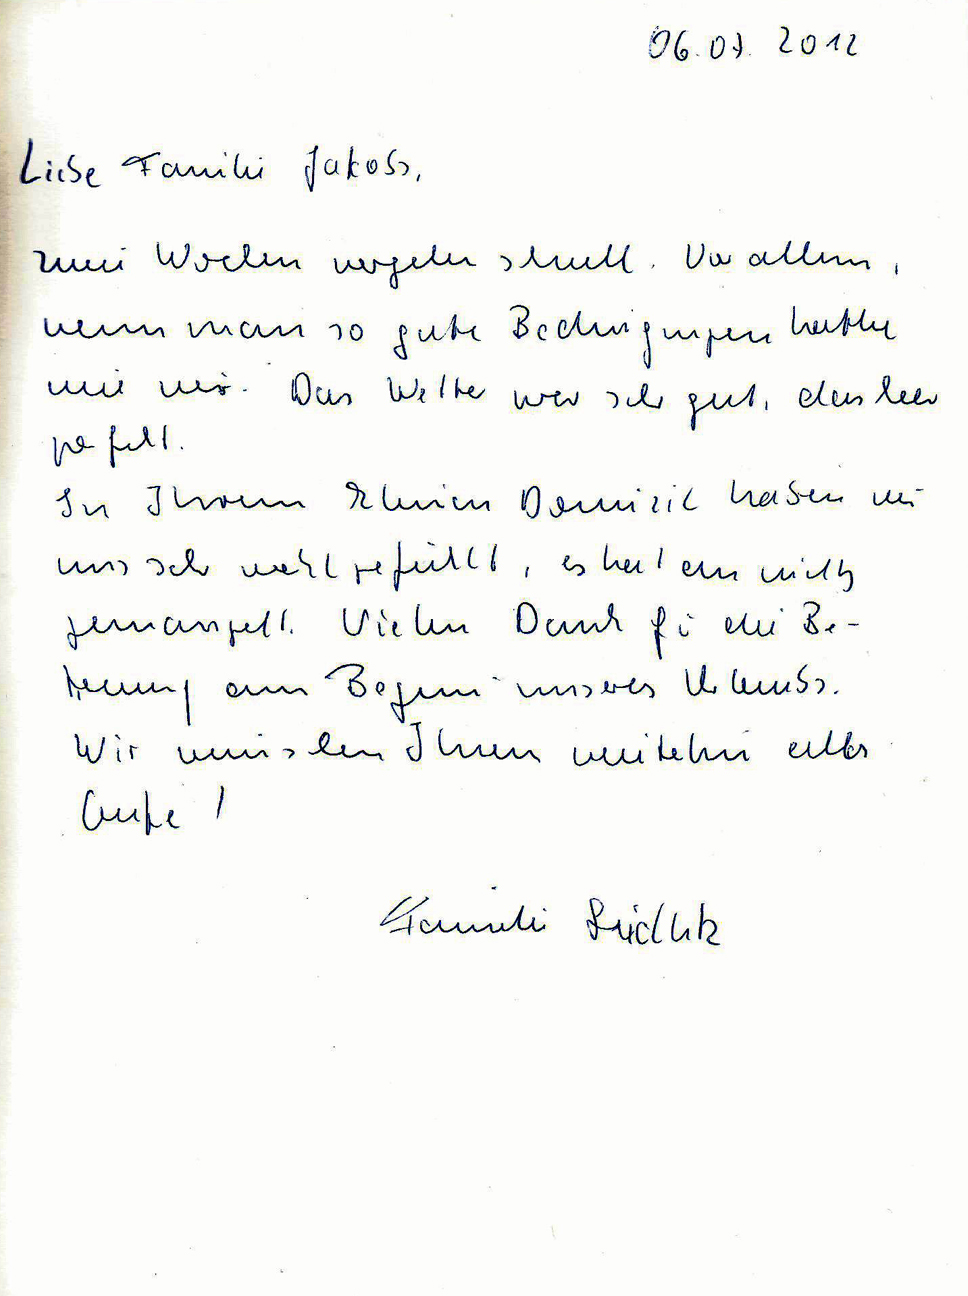 06.07.2012
Liebe Familie Jakobs,
zwei Wochen vergehen schnell. Vor allem,
wenn man so gute Bedingungen hatte
wie wir. Das Wetter war sehr gut, das hat
gefallt.
In Ihrem kleinen Domizil haben wir
uns sehr wohl gefühlt, es hat an nichts
gemangelt. Vielen Dank für die Be-
treuung am Beginn unseres Urlaubs.
Wir wünschen Ihnen weiterhin alles
Gute!
Familie